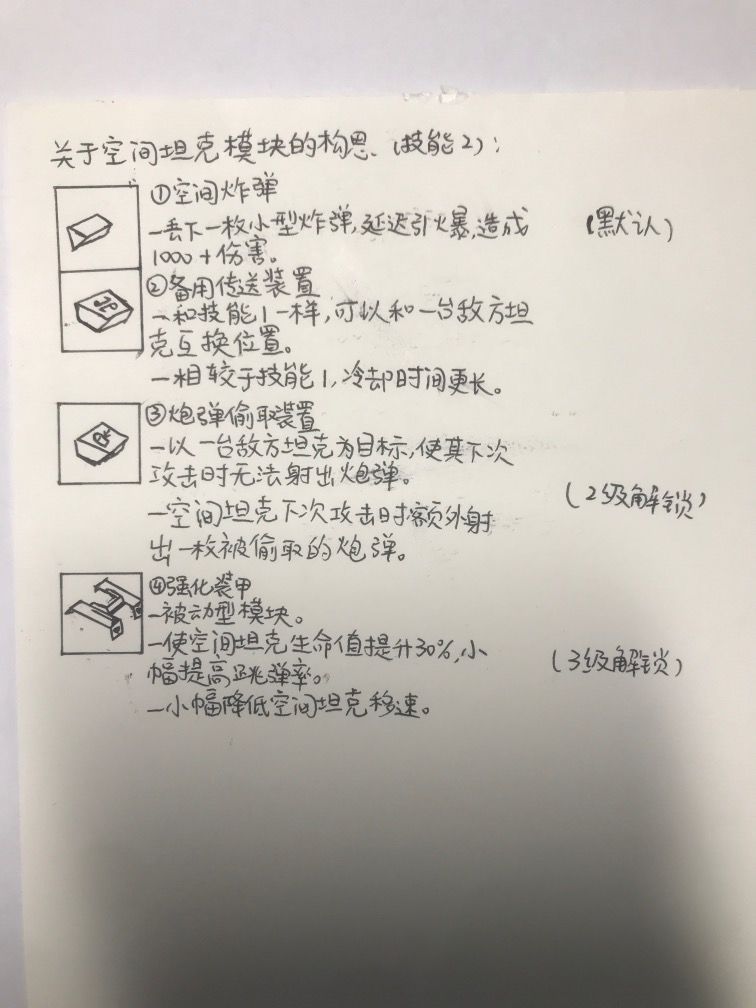 关于空间坦克模块的构思、(技能2):
①空间炸弹
—丢下一枚小型炸弹,延迟引火暴,造成 (默认)
1000+伤害。
②备用传送装置
—和技能1一样,可以和一台敌方坦
克互换位置。
—相较于技能1,冷却时间更长。
③炮弹偷取装置
—以一台敌方坦克为目标,使其下次
攻击时无法射出炮弹。
(2级解锁)
—空间坦克下次攻击时额外射
出一枚被偷取的炮弹。
④强化装甲
—被动型模块。
—使空间坦克生命值提升30%,小
幅提高跳弹率。
(3级解锁)
—小幅降低空间坦克移速。